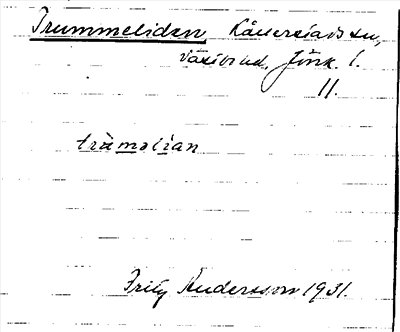 Trummeliden Kållerstads sn,
Västbo hd, Jönk. l.
11.
tràməlìan
Fritz Andersson 1931.